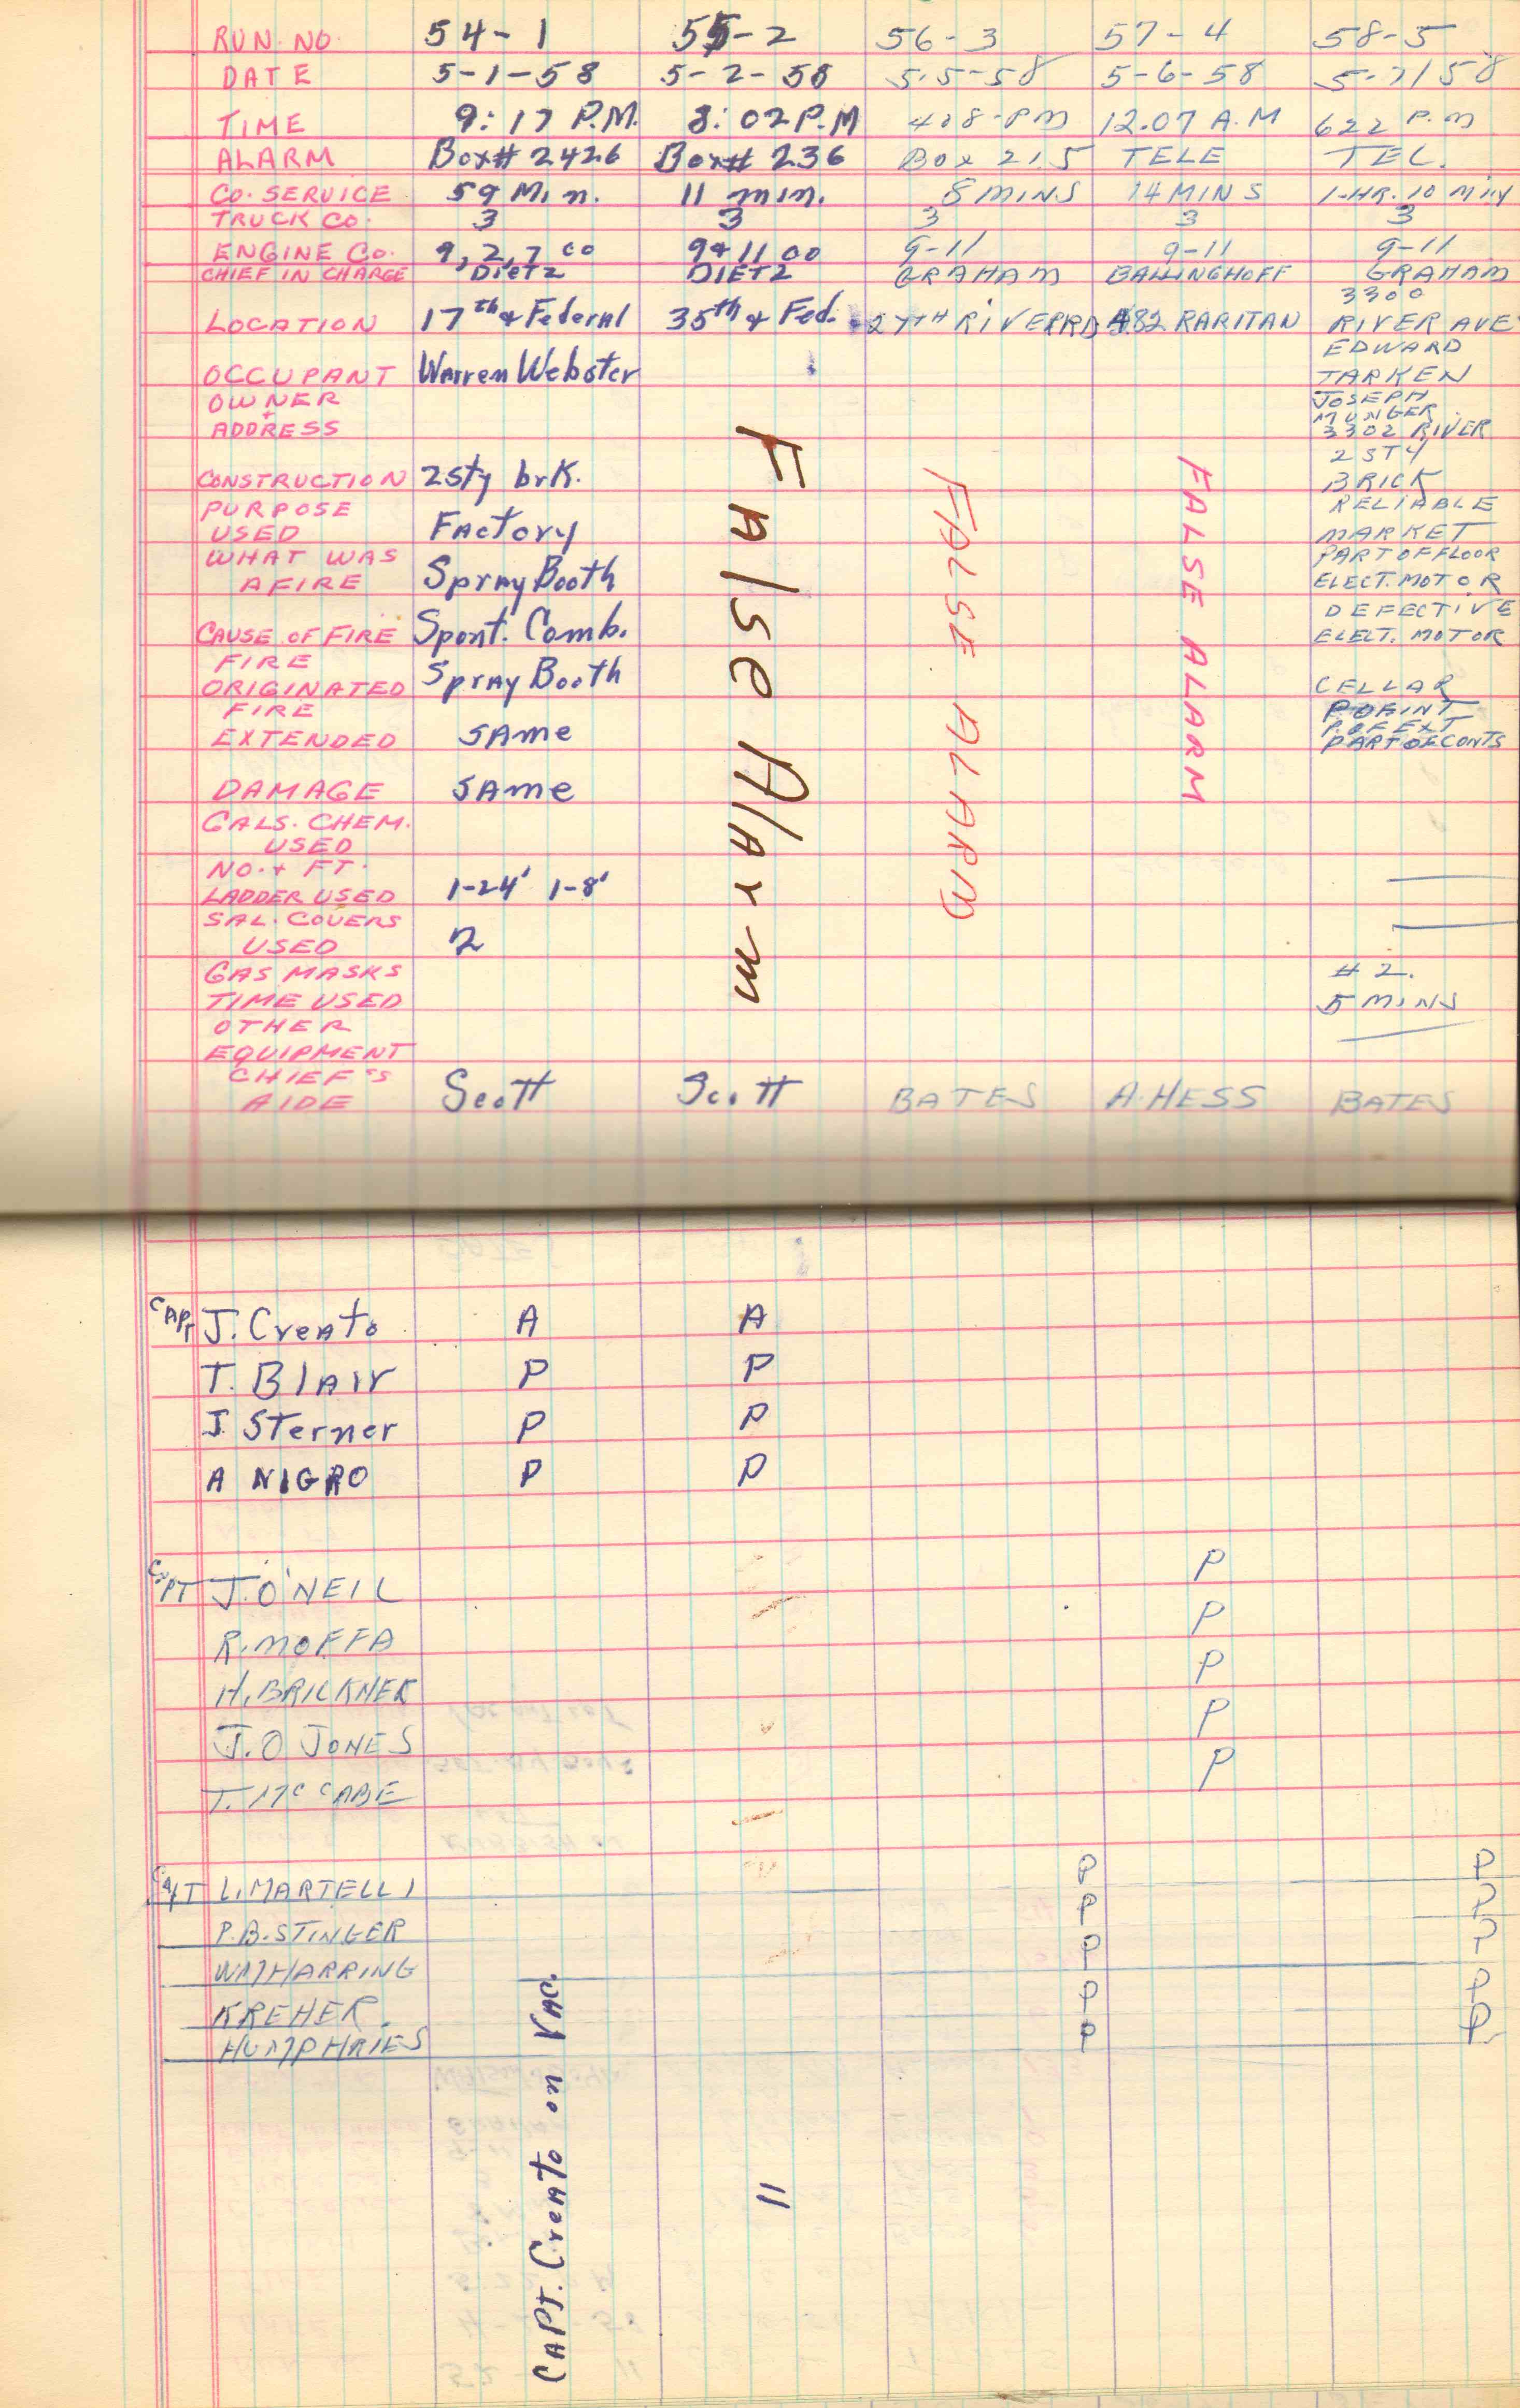 RUN. NO. 54-1 55-2 56-3 57-4 58-5
DATE 5-1-58 5-2-58 5-5-58 5-6-58 5-7/58
TIME 9:17 P.M. 8:02 P.M 408-PM 12.07 A.M 622 P.M
ALARM Box# 2426 Box# 236 Box 215 TELE TEL.
CO. SERVICE 59 Min. 11 min. 8 MINS 14 MINS 1-HR. 10 MIN
TRUCK CO. 3 3 3 3 3
ENGINE CO. 9, 2, 7 co 9 & 11 co 9-11 9-11 9-11
CHIEF IN CHARGE Dietz DIETZ GRAHAM BALLINGHOFF GRAHAM
LOCATION 17th & Federal 35th & Fed. 27TH RIVER RD 482 RARITAN 3300
RIVER AVE
OCCUPANT Warren Webster EDWARD
TARKEN
OWNER
+
ADDRESS
JOSEPH
MUNGER
3302 RIVER
CONSTRUCTION 2sty brk. 2 STY
BRICK
PURPOSE
USED Factory RELIABLE
MARKET
WHAT WAS
AFIRE Spray Booth PART OF FLOOR
ELECT. MOTOR
CAUSE OF FIRE Spont. Comb. DEFECTIVE
ELECT. MOTOR
FIRE
ORIGINATED Spray Booth CELLAR
FIRE
EXTENDED SAme
P. OF EXT
PART OF CONTS
DAMAGE SAme
GALS. CHEM.
USED
NO. + FT.
LADDER USED 1-24' 1-8'
SAL. COVERS
USED 2
GAS MASKS # 2.
TIME USED 5 MINS
OTHER
EQUIPMENT
CHIEF'S
AIDE Scott Scott BATES A. HESS BATES
FAlse AlArm
FALSE ALARM
FALSE ALARM
CAPT J. Creato A A
T. BlAir P P
J. Sterner P P
A NIGRO P P
CAPT J. O'NEIL P
R. MOFFA P
H. BRICKNER P
J. O JONES P
T. McCABE P
CAPT L. MARTELLI P P
P.B. STINGER P P
WM HARRING P P
KREHER P P
HUMPHRIES P P
CAPT. Creato on VAC.
"